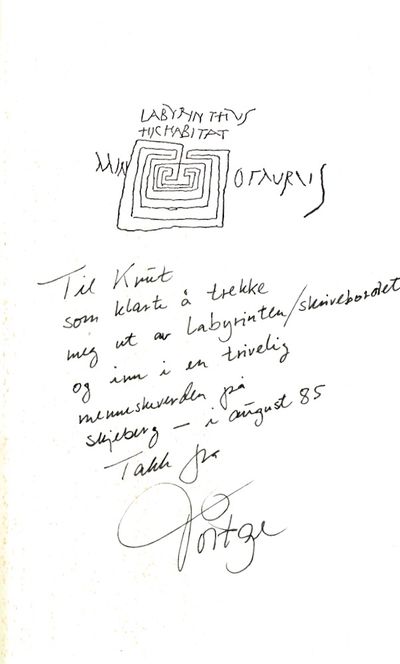 LABYRINTHUS
HIC HABITAT
MINOTAURUS
Til Knut
som klarte å trekke
meg ut av labyrinten/skrivebordet
og inn i en trivelig
menneskeverden på
Skjeberg – i august 85
Takk fra